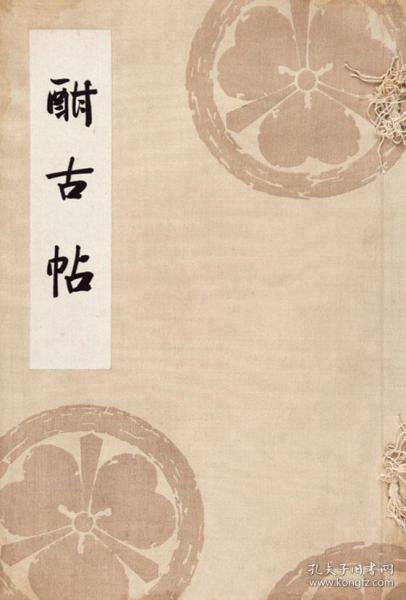 酣古帖
孔夫子旧书网
www.kongfz.com